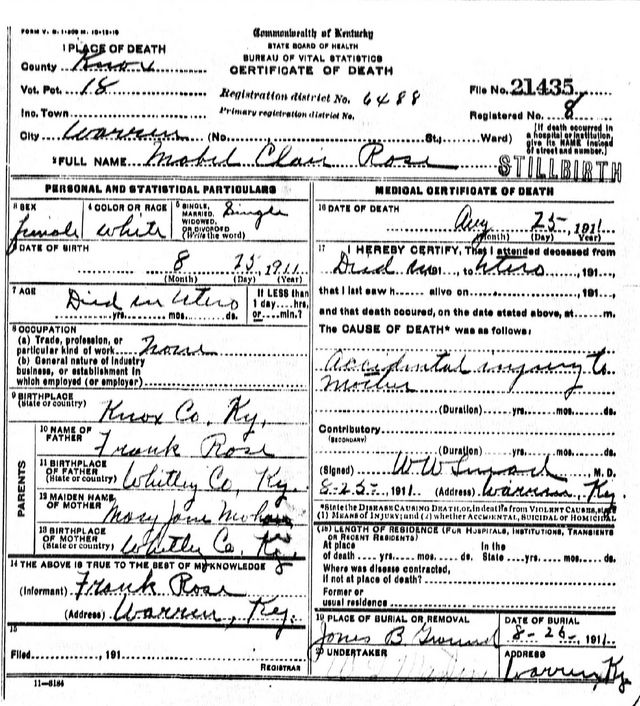 FORM V. S. 1-500 M. 10-12-10
Commonwealth of Kentucky
STATE BOARD OF HEALTH
BUREAU OF VITAL STATISTICS
CERTIFICATE OF DEATH
1 PLACE OF DEATH
County Knox
Vot. Pct. 18
Registration district No. 6488
File No. 21435
Inc. Town
Primary registration district No.
Registered No. 8
City Warren (No. St.; Ward)
[If death occurred in a hospital or institution, give its NAME instead of street and number.]
2 FULL NAME Mabel Clair Rose
STILLBIRTH
PERSONAL AND STATISTICAL PARTICULARS
3 SEX
female
4 COLOR OR RACE
white
5 SINGLE, MARRIED, WIDOWED, OR DIVORCED (Write the word)
Single
6 DATE OF BIRTH
8 25, 1911
(Month) (Day) (Year)
7 AGE
Died in Utero
yrs. mos. ds.
If LESS than 1 day....hrs. or....min.?
8 OCCUPATION
(a) Trade, profession, or particular kind of work none
(b) General nature of industry business, or establishment in which employed (or employer)
9 BIRTHPLACE (State or country)
Knox Co. Ky.
PARENTS
10 NAME OF FATHER
Frank Rose
11 BIRTHPLACE OF FATHER (State or country)
Whitley Co, Ky.
12 MAIDEN NAME OF MOTHER
Mary Jane
13 BIRTHPLACE OF MOTHER (State or country)
Whitley Co, Ky.
14 THE ABOVE IS TRUE TO THE BEST OF MY KNOWLEDGE
(Informant) Frank Rose
(Address) Warren, Ky.
15
Filed, 191
REGISTRAR
11-8184
MEDICAL CERTIFICATE OF DEATH
16 DATE OF DEATH
Aug 25, 1911
(Month) (Day) (Year)
17 I HEREBY CERTIFY, That I attended deceased from
Died in 191, to Utero 191
that I last saw h alive on 191
and that death occured, on the date stated above, at m.
The CAUSE OF DEATH* was as follows:
Accidental injury to
Mother
(Duration) yrs. mos. ds.
Contributory
(SECONDARY)
(Duration) yrs. mos. ds.
(Signed) W W M.D.
8-25-, 1911. (Address) Warren, Ky.
*State the DISEASE CAUSING DEATH, or, in deaths from VIOLENT CAUSES, state (1) MEANS OF INJURY; and (2) whether ACCIDENTAL, SUICIDAL OR HOMICIDAL
(18) LENGTH OF RESIDENCE (FOR HOSPITALS, INSTITUTIONS, TRANSIENTS OR RECENT RESIDENTS)
At place of death yrs. mos. ds. In the State yrs. mos. ds.
Where was disease contracted, if not at place of death?
Former or usual residence
19 PLACE OF BURIAL OR REMOVAL
Jones B Ground
DATE OF BURIAL
8-26-, 1911
20 UNDERTAKER
ADDRESS
Warren, Ky